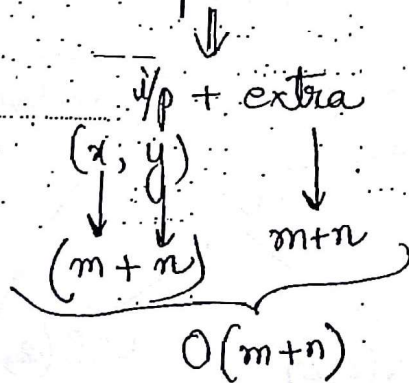 i/p + extra
(x, y)
(m + n) m+n
O(m+n)